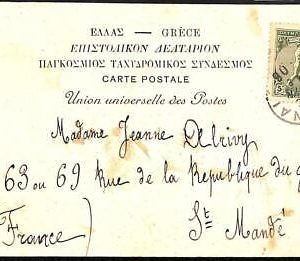 ΕΛΛΑΣ — GRÈCE
ΕΠΙΣΤΟΛΙΚΟΝ ΔΕΛΤΑΡΙΟΝ
ΠΑΓΚΟΣΜΙΟΣ ΤΑΧΥΔΡΟΜΙΚΟΣ ΣΥΝΔΕΣΜΟΣ
CARTE POSTALE
Union universelle des Postes
Madame Jeanne
63 ou 69 Rue de la Republique du
St Mandé
France)